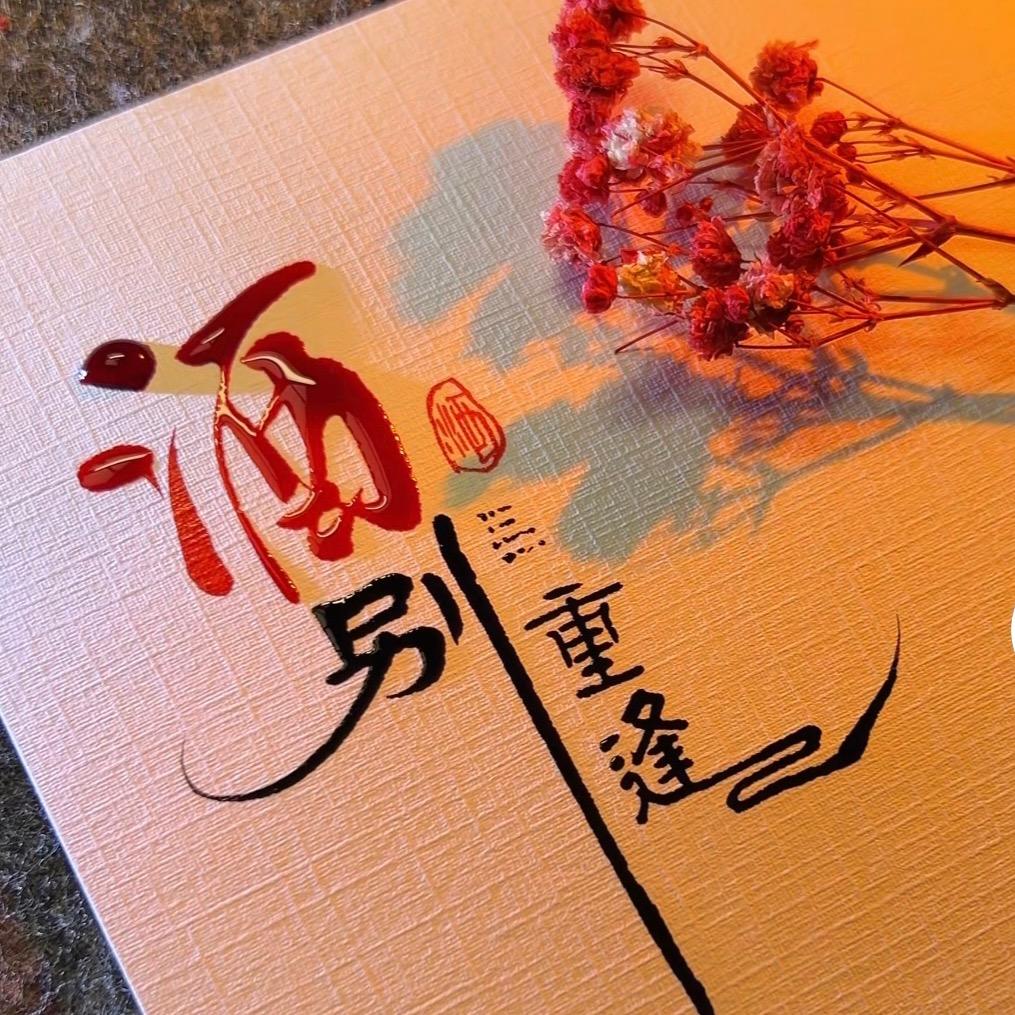 酒
酒
别
重
逢